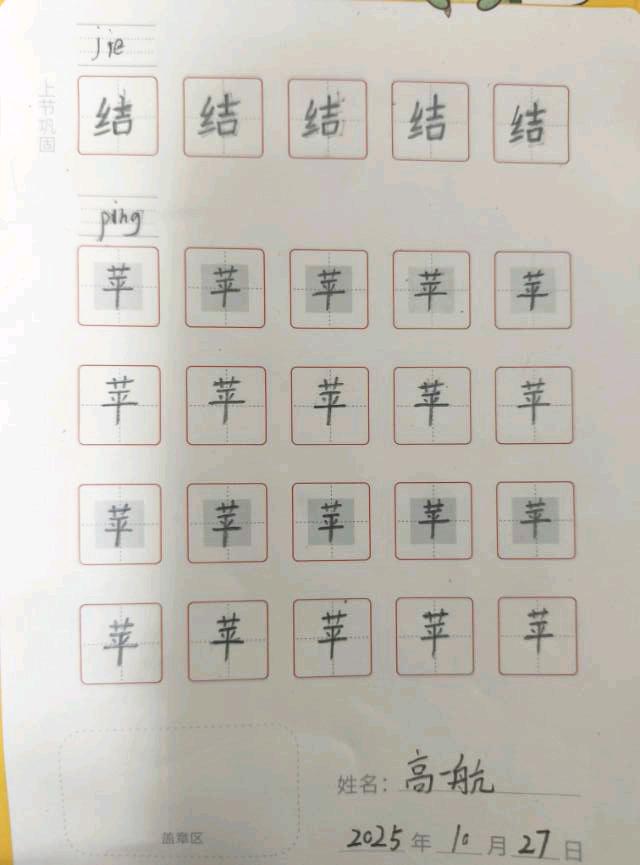 jie
上节巩固
结 结 结 结 结
ping
苹 苹 苹 苹 苹
苹 苹 苹 苹 苹
苹 苹 苹 苹 苹
苹 苹 苹 苹 苹
姓名: 高一航
盖章区
2025 年 10 月 27 日